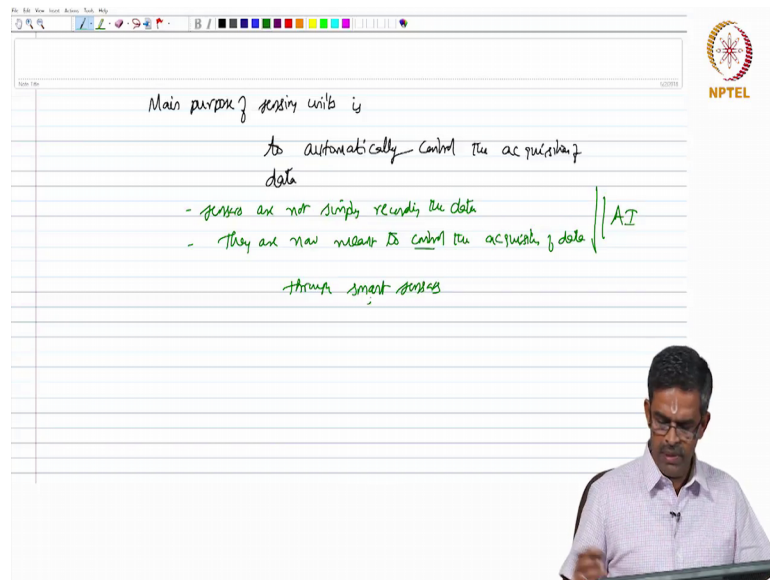 File Edit View Insert Actions Tools Help
B I
NPTEL
Note Title
Main purpose of sensing units is
to automatically control the acquisition of
data
- sensors are not simply recording the data
- They are now meant to control the acquisition of data
AI
through smart sensors